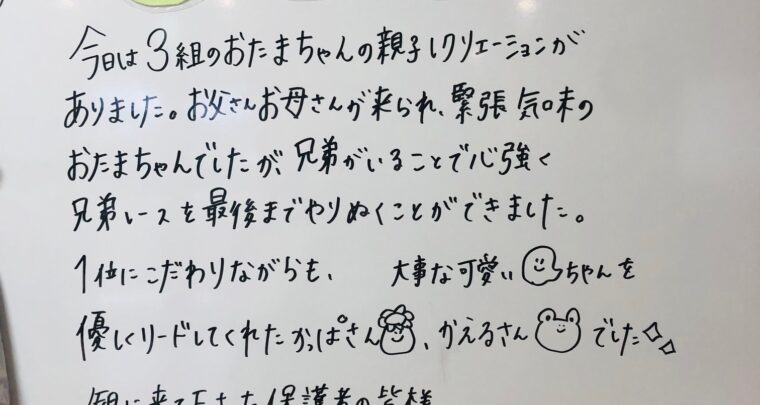 今日は3組のおたまちゃんの親子レクリエーションが
ありました。お父さんお母さんが来られ、緊張気味の
おたまちゃんでしたが、兄弟がいることで心強く
兄弟レースを最後までやりぬくことができました。
1位にこだわりながらも、 大事な可愛いちゃんを
優しくリードしてくれたかっぱさん、かえるさんでした
に来て下さった保護者の皆様